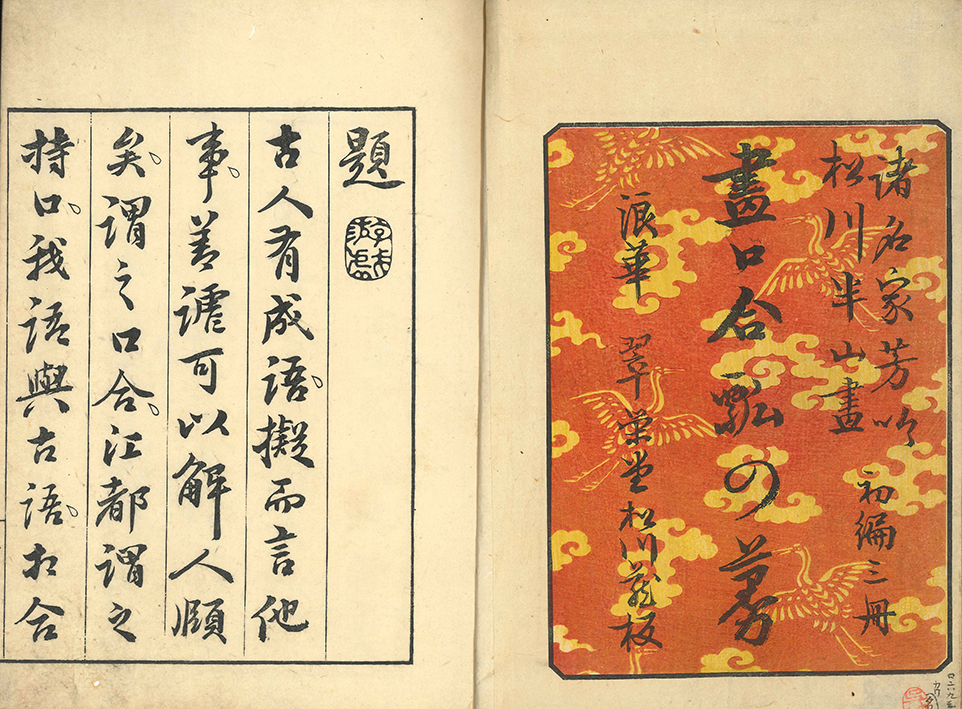 諸名家芳吟
松川半山畫
初編三冊
畫口合瓢の蔓
浪華 翠栄堂松川蔵板
題
古人有成語。擬而言他
事。善謔可以解人頤
矣。謂之口合。江都謂之
持口。我語與古語。相合